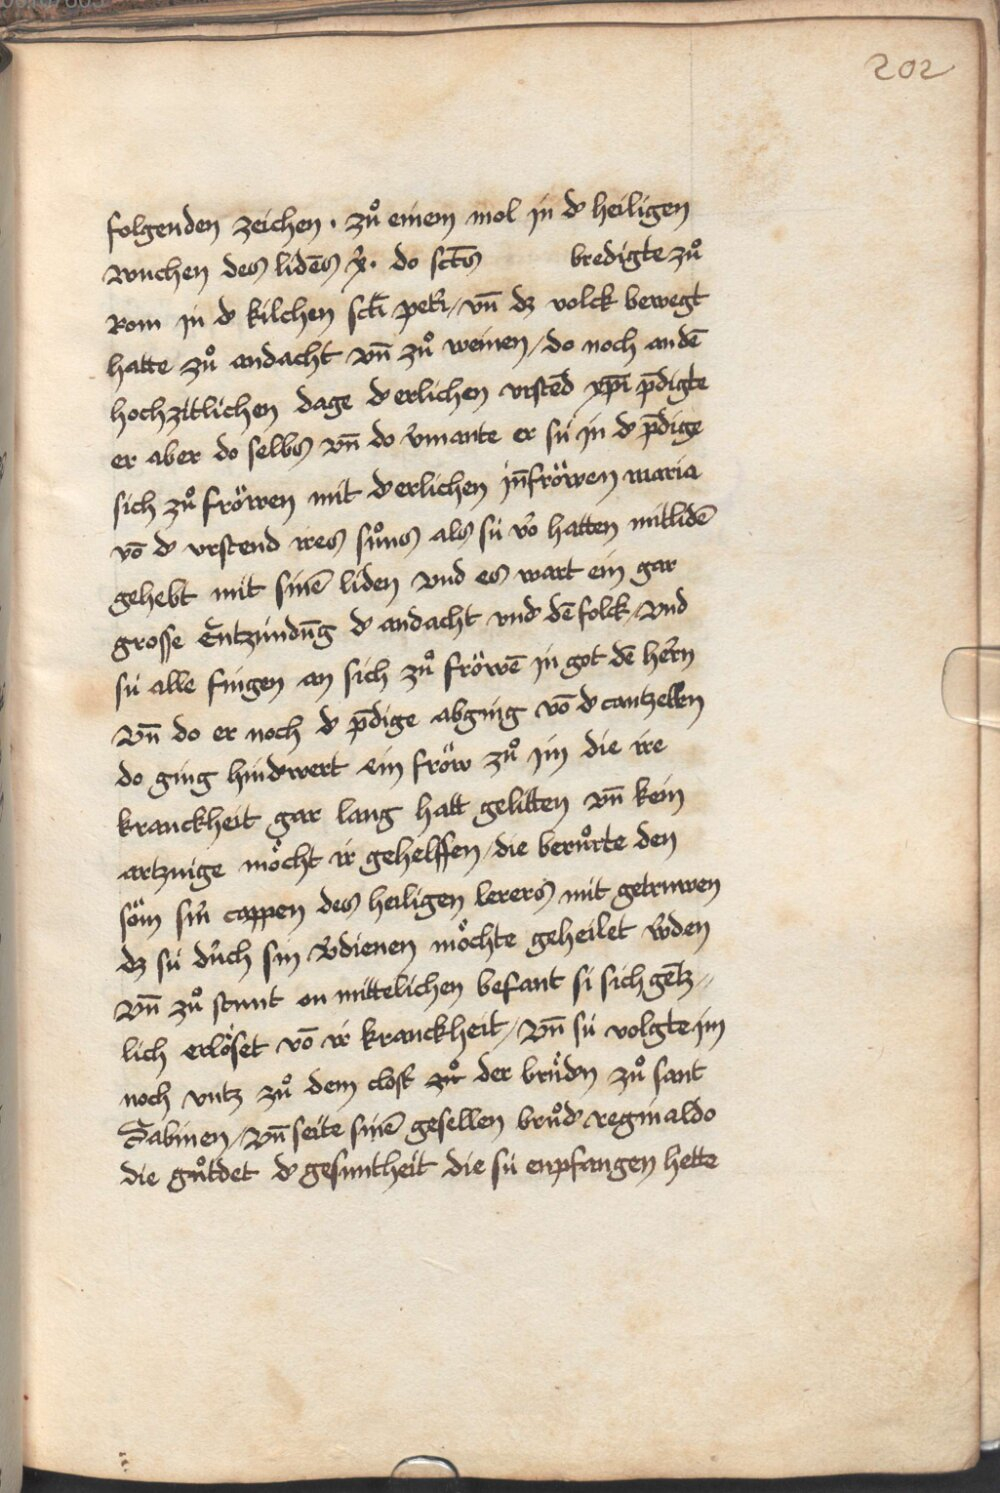 202
folgenden zeichen · zů einem mol in dˀ heiligen
wuchen des lidēs xˀ. do sct̄s bredigte zů
Rom in dˀ kilchen sct̄i pet̄ri / vn̄ dz volck bewegt
hatte zů andacht vn̄ zů weinen / do noch an dē
hochzitlichen dage dˀ erlichen vrstēd xp̄i p̄digte
er aber do selbs vn̄ do v̂mante er sú in dˀ p̄dige
sich zů fröwen mit dˀ erlichen jn̄fröwen maria
vō dˀ vrstend ires sůns als sú vˀo hatten mitlidē
gehebt mit sinē liden vnd es wart ein gar
grosse Entzúndūg dˀ andacht vndˀ dē folck / vnd
sú alle fingen an sich zů fröwē in got dē hērn
vn̄ do er noch dˀ p̄dige abging vō dˀ cantzellen
do ging hindˀwert ein fröw zů im die ire
kranckheit gar lang hatt gelitten vn̄ kein
artznige möcht ir gehelffen / die berůrte den
söm sinˀ cappen des heiligen lerers mit getruwen
dz sú dúrch sin v̂dienen möchte geheilet wˀden
vn̄ zů stunt on mittelichen befant si sich gētz //
lich erlöset vō irˀ kranckheit / vn̄ sú volgte im
noch vntz zů dem clostˀ zů der brůdˀn zů sant
Sabinen / vn̄ seite sinē gesellen brůdˀ reginaldo
die gůtdet dˀ gesuntheit die sú enpfangen hette